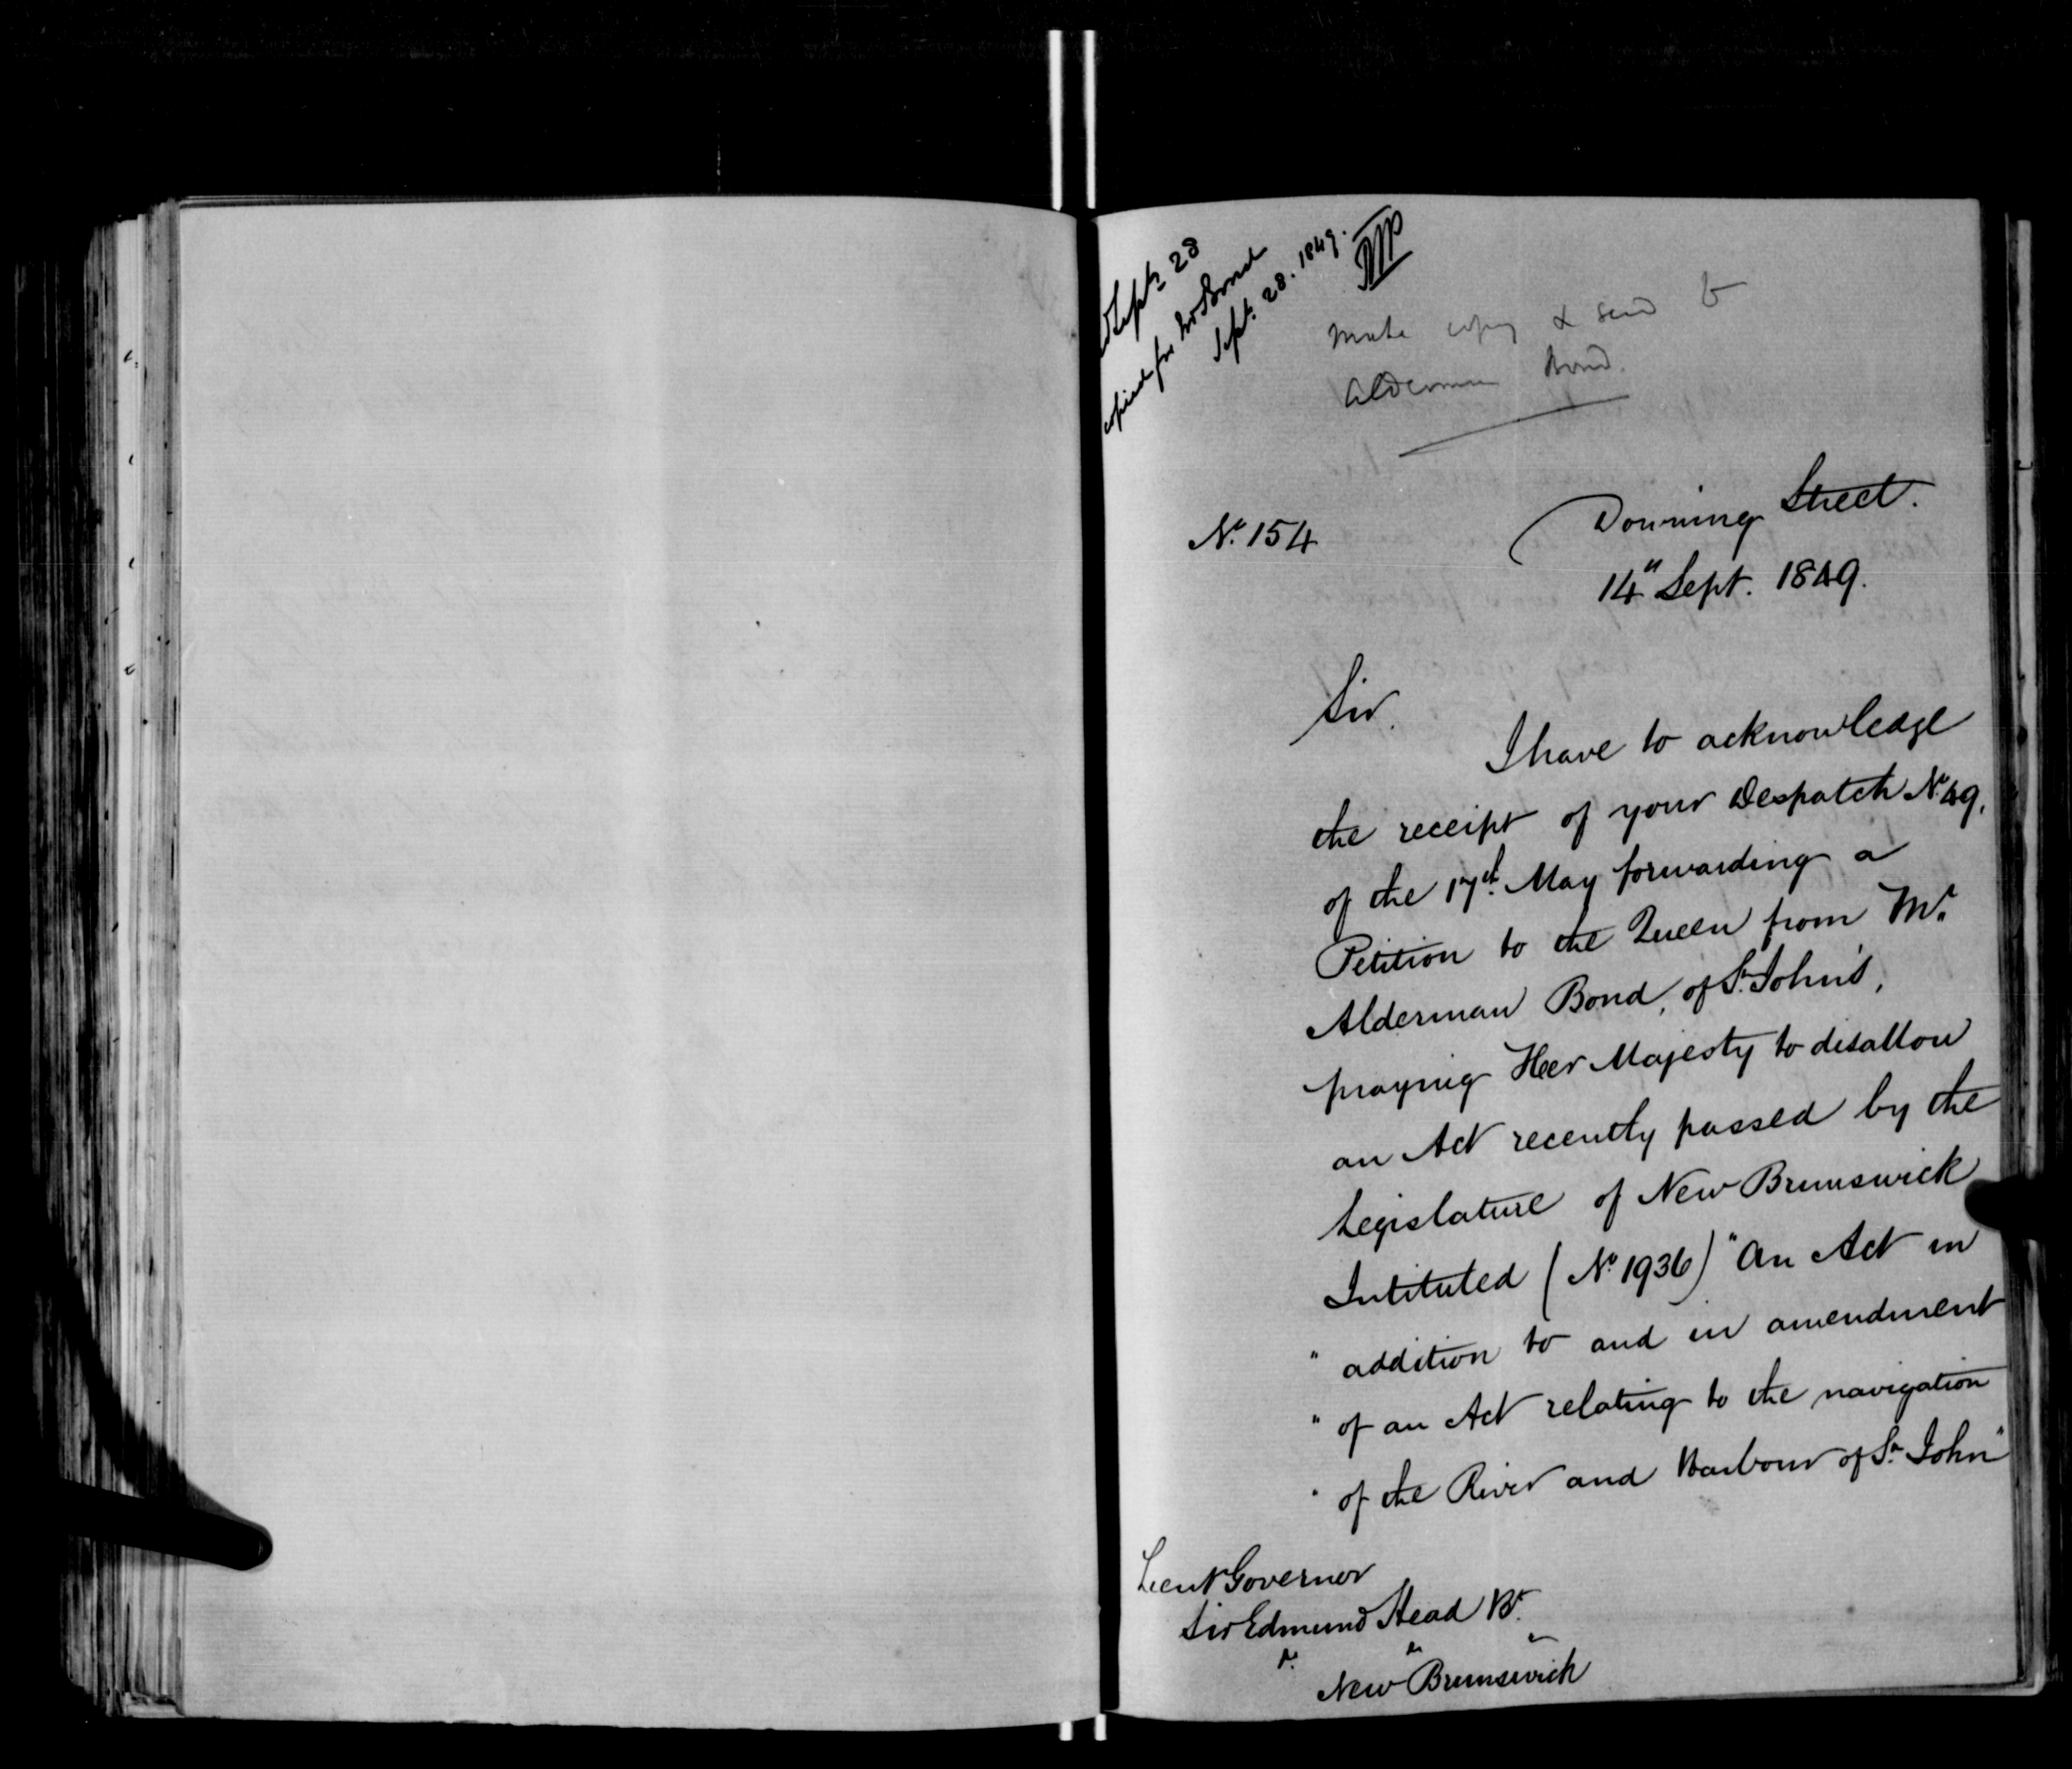 Sept. 28
copied for Mr Bond
Sept. 28. 1849.
Make copy & send to
Alderman Bond.
No. 154
Downing Street.
14th Sept. 1849.
Sir.
I have to acknowledge
the receipt of your Despatch No. 49,
of the 17th. May forwarding a
Petition to the Queen from Mr.
Alderman Bond, of St. John's,
praying Her Majesty to disallow
an Act recently passed by the
Legislature of New Brunswick
Intituled (No. 1936) "An Act in
" addition to and in amendment
" of an Act relating to the navigation
" of the River and Harbour of St. John"
Lieut Governor
Sir Edmund Head Bt.
New Brunswick